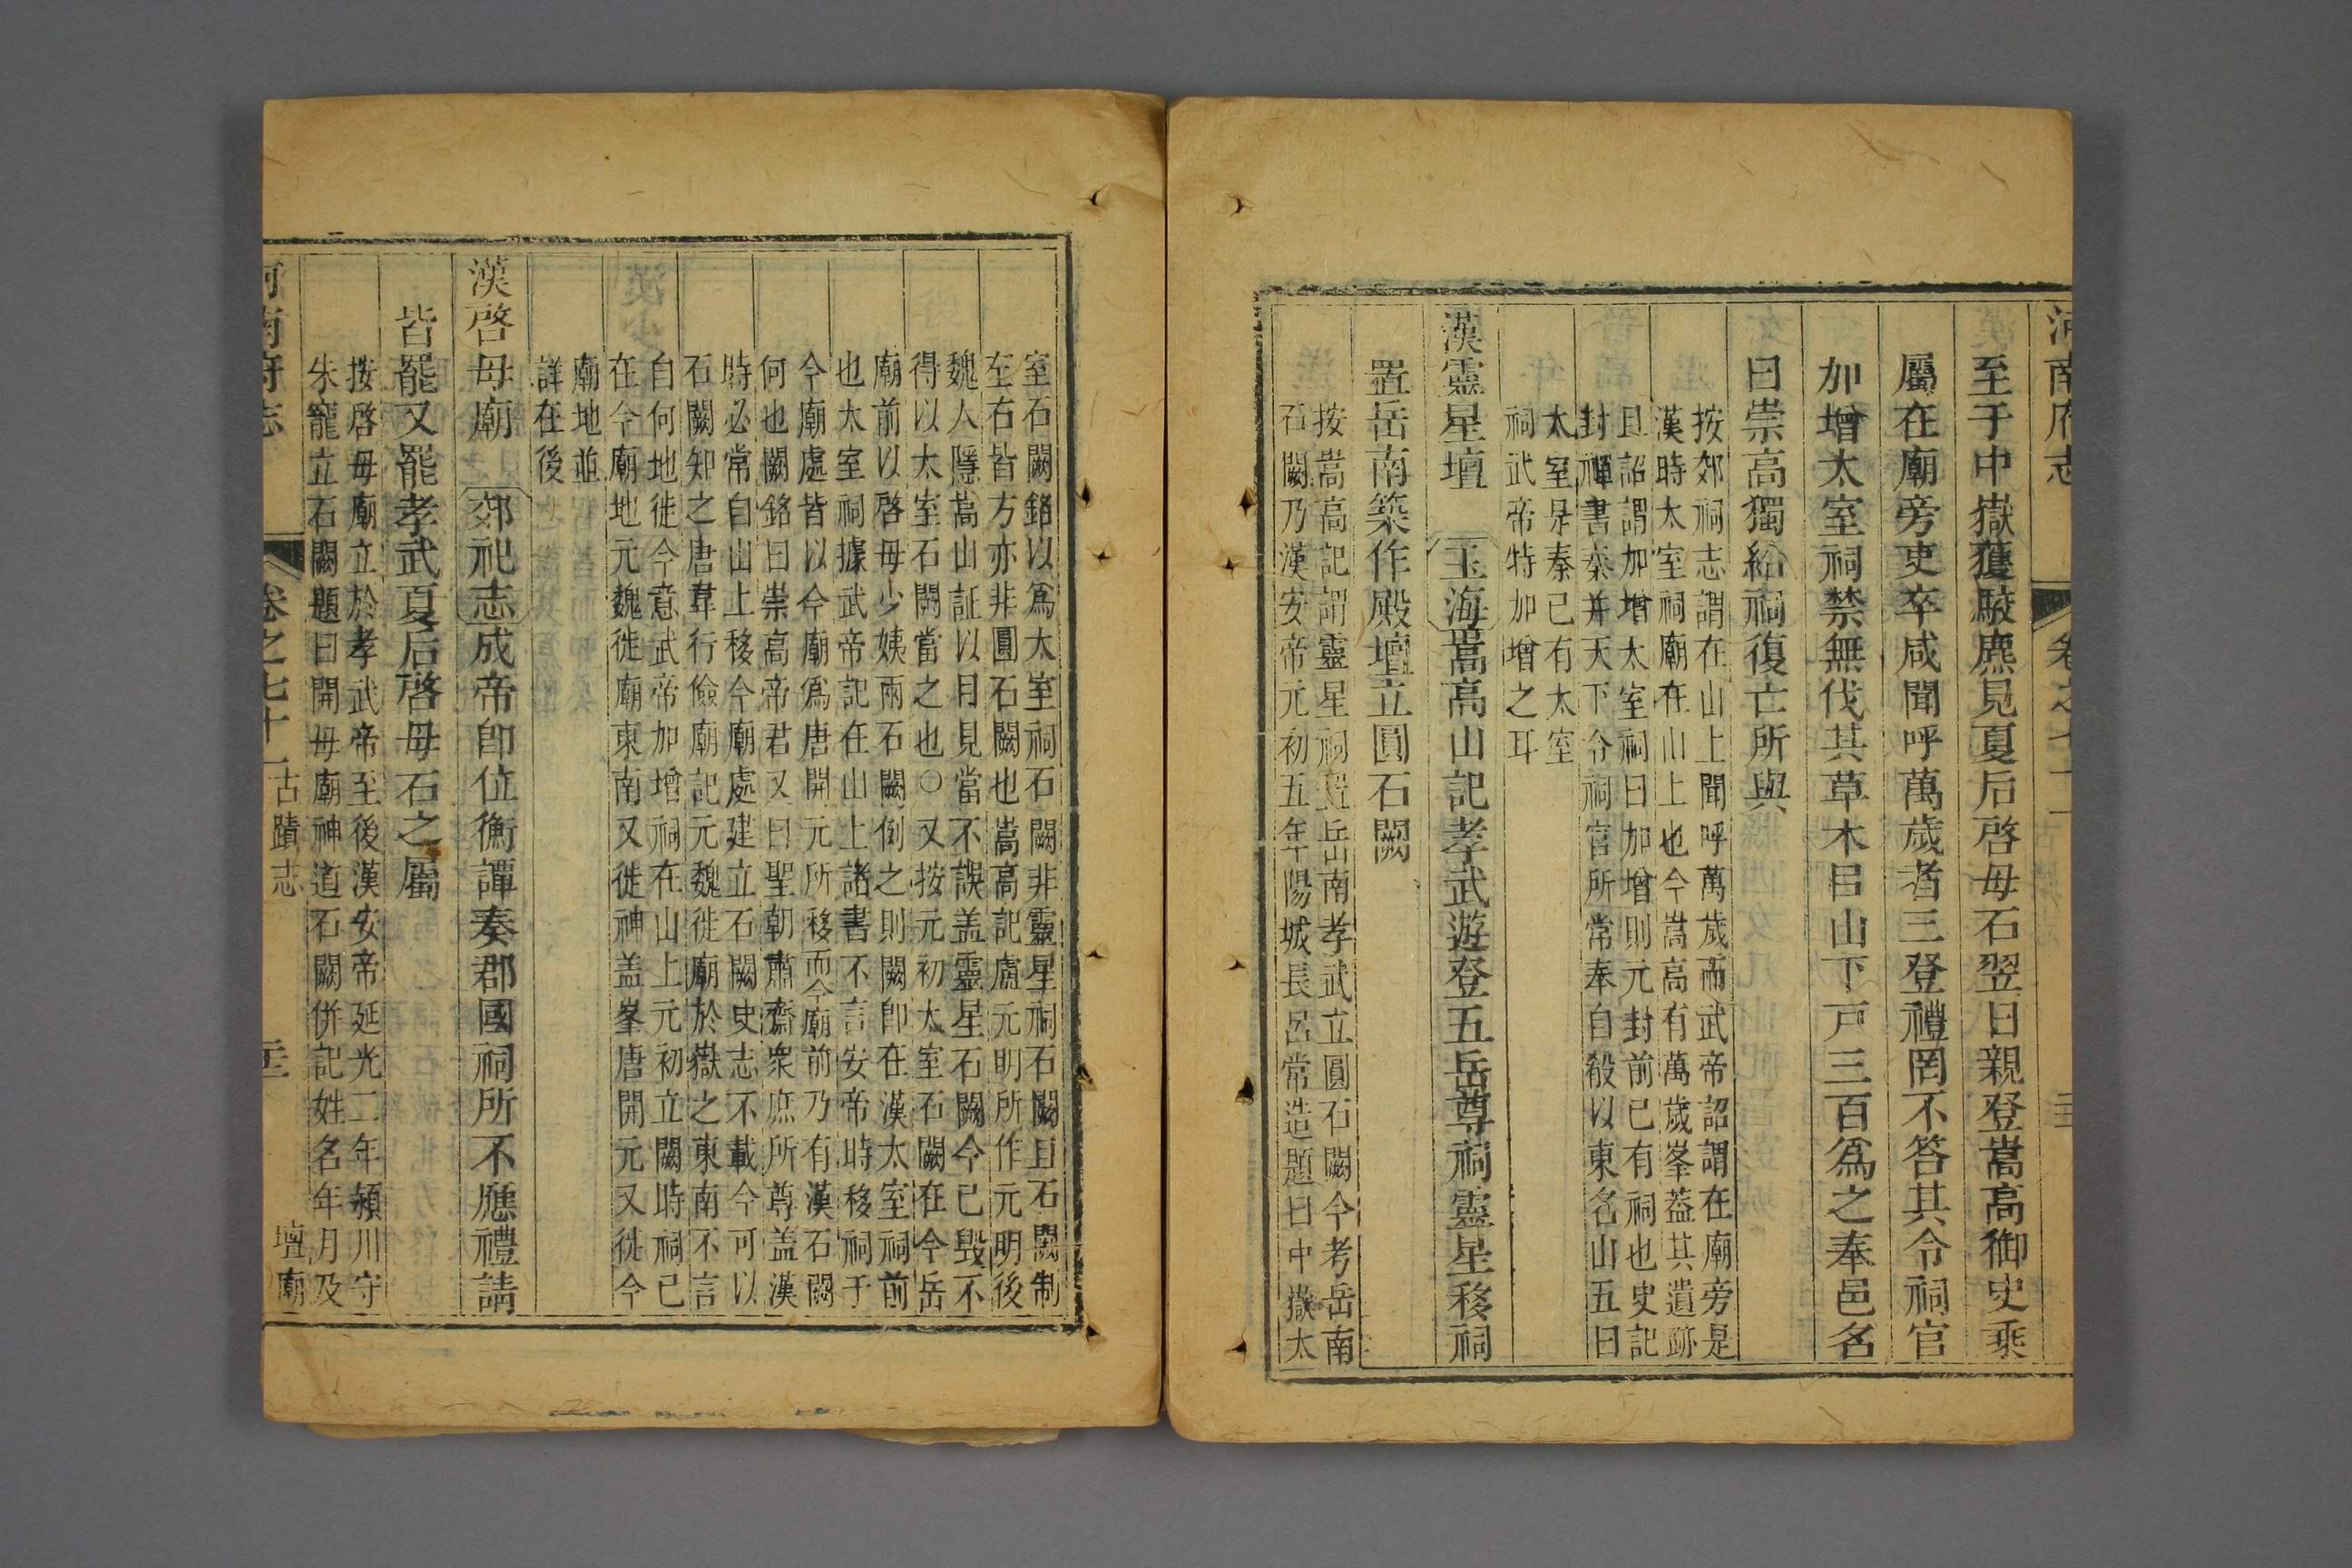 河南府志 卷之七十一
至于中嶽獲駮麃見夏后啓母石翌日親登嵩高御史乘
屬在廟旁吏卒咸聞呼萬歲者三登禮罔不答其令祠官
加增太室祠禁無伐其草木㠯山下戸三百爲之奉邑名
曰崇高獨給祠復亡所與
按郊祠志謂在山上聞呼萬歲而武帝詔謂在廟旁是
漢時太室祠廟在山上也今嵩高有萬歲峯葢其遺跡
且詔謂加增太室祠曰加增則元封前已有祠也史記
封禪書秦并天下令祠官所常奉自殽以東名山五曰
太室是秦已有太室
祠武帝特加增之耳
漢靈星壇 玉海嵩高山記孝武遊登五岳尊祠靈星移祠
置岳南築作殿壇立圓石闕
按嵩高記謂靈星祠置岳南孝武立圓石闕今考岳南
石闕乃漢安帝元初五年陽城長呂常造題曰中嶽太
室石闕銘以爲太室祠石闕非靈星祠石闕且石闕制
左右皆方亦非圓石闕也嵩高記盧元明所作元明後
魏人隱嵩山証以目見當不誤盖靈星石闕今已毁不
得以太室石闕當之也○又按元初太室石闕在今岳
廟前以啓母少姨兩石闕例之則闕卽在漢太室祠前
也太室祠據武帝記在山上諸書不言安帝時移祠于
今廟處皆以今廟爲唐開元所移而今廟前乃有漢石闕
何也闕銘曰崇高帝君又曰聖朝肅齋衆庶所尊盖漢
時必常自山上移今廟處建立石闕史志不載今可以
石闕知之唐韋行儉廟記元魏徙廟於嶽之東南不言
自何地徙今意武帝加增祠在山上元初立闕時祠已
在今廟地元魏徙廟東南又徙神盖峯唐開元又徙今
廟地並
詳在後
漢啓母廟 郊祀志成帝卽位衡譚奏郡國祠所不應禮請
皆罷又罷孝武夏后啓母石之屬
按啓母廟立於孝武帝至後漢安帝延光二年潁川守
朱寵立石闕題曰開母廟神道石闕併記姓名年月及
河南府志 卷之七十一 古蹟志 壇廟